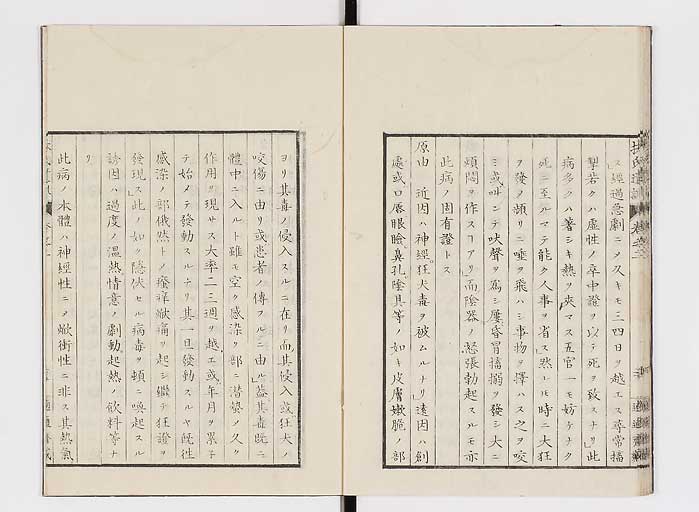 ス經過急劇ニメ久キモ三四日ヲ越エス尋常搐
掣若クハ虛性ノ卒中證ヲ以テ死ヲ致スナリ」此
病多クハ著シキ熱ヲ夾マス五官一モ妨ケナク
死ニ至ルマテ能ク人事ヲ省ス然トモ時ニ大狂
ヲ發メ頻リニ唾ヲ飛ハシ事物ヲ擇ハス之ヲ咬
ミ或ハ叫ンテ吠聲ヲ爲シ屢昏冒搐搦ヲ發シ大ニ
煩悶ヲ作スヿアリ」而陰器ノ怒張勃起スルモ亦
此病ノ固有證トス
原由 近因ハ神經狂犬毒ヲ被ムルナリ」遠因ハ創
處或口唇眼瞼鼻孔陰具等ノ如キ皮膚嫩脆ノ部
ヨリ其毒ノ侵入スルニ在リ而其侵入或狂犬ノ
咬傷ニ由リ或患者ノ傳フルニ由ル」蓋其毒既ニ
體中ニ入ルト雖モ空ク感染ノ部ニ潜蟄ノ久ク
作用ヲ現サス大率二三週ヲ越エ或年月ヲ累子
テ始メテ發動スルナリ其一旦發動スルヤ既往
感染ノ部俄然トノ癢痒焮痛ヲ起シ繼テ狂證ヲ
發現ス」此ノ如ク隱伏セル病毒ヲ頓ニ喚起スル
誘因ハ過度ノ溫熱情意ノ劇動起熱ノ飲料等ナ
リ
此病ノ本體ハ神經性ニメ焮衝性ニ非ス其熱氣